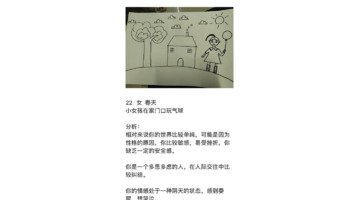 22 女 春天
小女孩在家门口玩气球
分析:
相对来说你的世界比较单纯, 可能是因为
性格的原因, 你比较敏感, 易受挫折, 你
缺乏一定的安全感。
你是一个多思多虑的人, 在人际交往中比
较纠结。
你的情感处于一种阴天的状态, 感到委
屈, 想哭泣